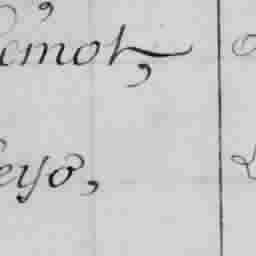 emot,
eyo,